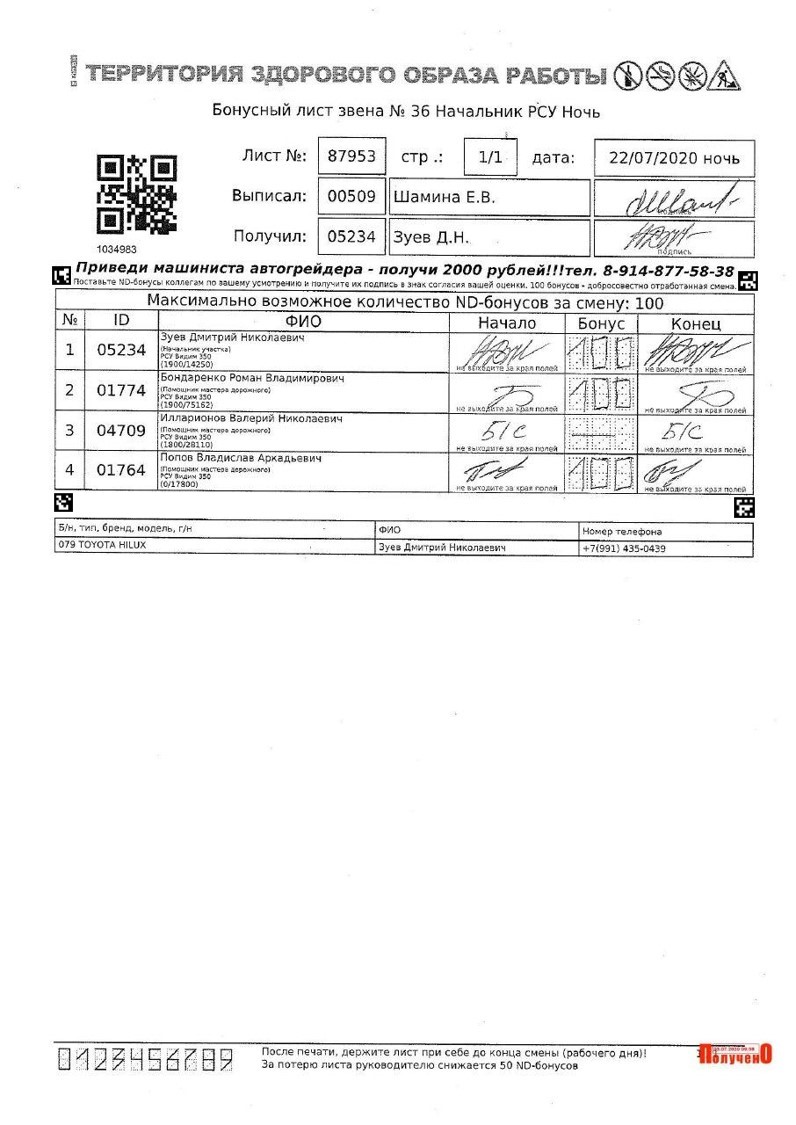 ТЕРРИТОРИЯ ЗДОРОВОГО ОБРАЗА РАБОТЫ
Бонусный лист звена № 36 Начальник РСУ Ночь
Лист №: 87953 стр .: 1/1 дата: 22/07/2020 ночь
Выписал: 00509 Шамина Е.В.
подпись
Получил: 05234 Зуев Д.Н.
подпись
1034983
Приведи машиниста автогрейдера - получи 2000 рублей!!!тел. 8-914-877-58-38
Поставьте ND-бонусы коллегам по вашему усмотрению и получите их подпись в знак согласия вашей оценки. 100 бонусов - добросовестно отработанная смена.
Максимально возможное количество ND-бонусов за смену: 100
№ ID ФИО Начало Бонус Конец
1 05234 Зуев Дмитрий Николаевич 100
(Начальник участка)
РСУ Видим 350
(1900/14250)
не выходите за края полей не выходите за края полей
2 01774 Бондаренко Роман Владимирович 100
(Помощник мастера дорожного)
РСУ Видим 350
(1900/75162)
не выходите за края полей не выходите за края полей
3 04709 Илларионов Валерий Николаевич Б/С — Б/С
(Помощник мастера дорожного)
РСУ Видим 350
(1800/28110)
не выходите за края полей не выходите за края полей
4 01764 Попов Владислав Аркадьевич 100
(Помощник мастера дорожного)
РСУ Видим 350
(0/17800)
не выходите за края полей не выходите за края полей
Б/н, тип, бренд, модель, г/н ФИО Номер телефона
079 TOYOTA HILUX Зуев Дмитрий Николаевич +7(991) 435-0439
0123456789
После печати, держите лист при себе до конца смены (рабочего дня)!
За потерю листа руководителю снижается 50 ND-бонусов
Получено